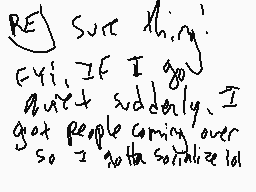 RE) Sure thing!
FYI, IF I go
quiet suddenly, I
got people coming over
so I gotta socialize lol